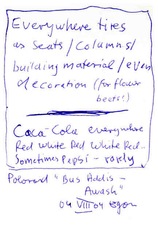 Everywhere tires
as seats/columns/
building material/even
decoration (for flower
beetes)
Coca-Cola everywhere
Red white Red White Red..
Sometimes Pepsi - rarely
"Bus Addis -
Awash"
04 VIII 04